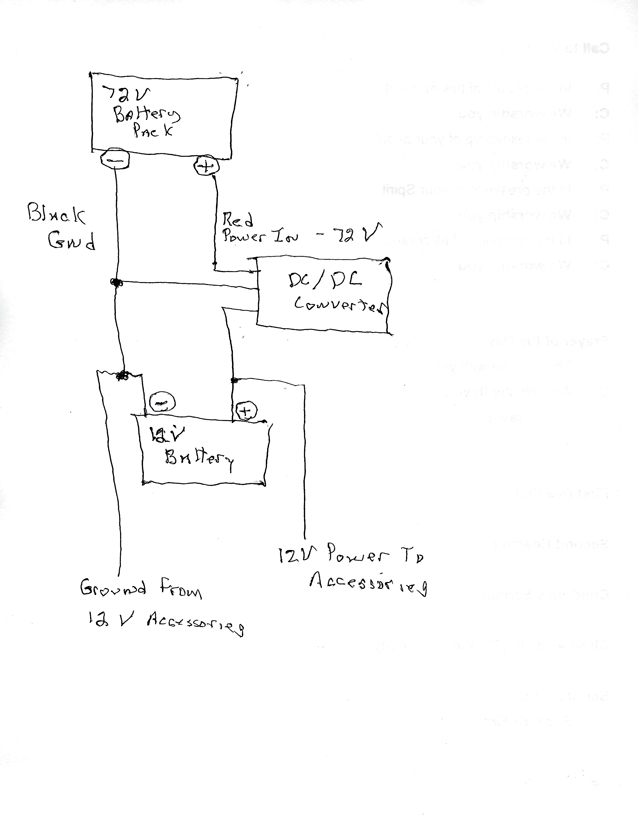 72V
Battery
Pack
−
+
Black
Gnd
Red
Power In - 72V
DC/DC
Converter
−
+
12V
Battery
12V Power To
Accessories
Ground From
12V Accessories